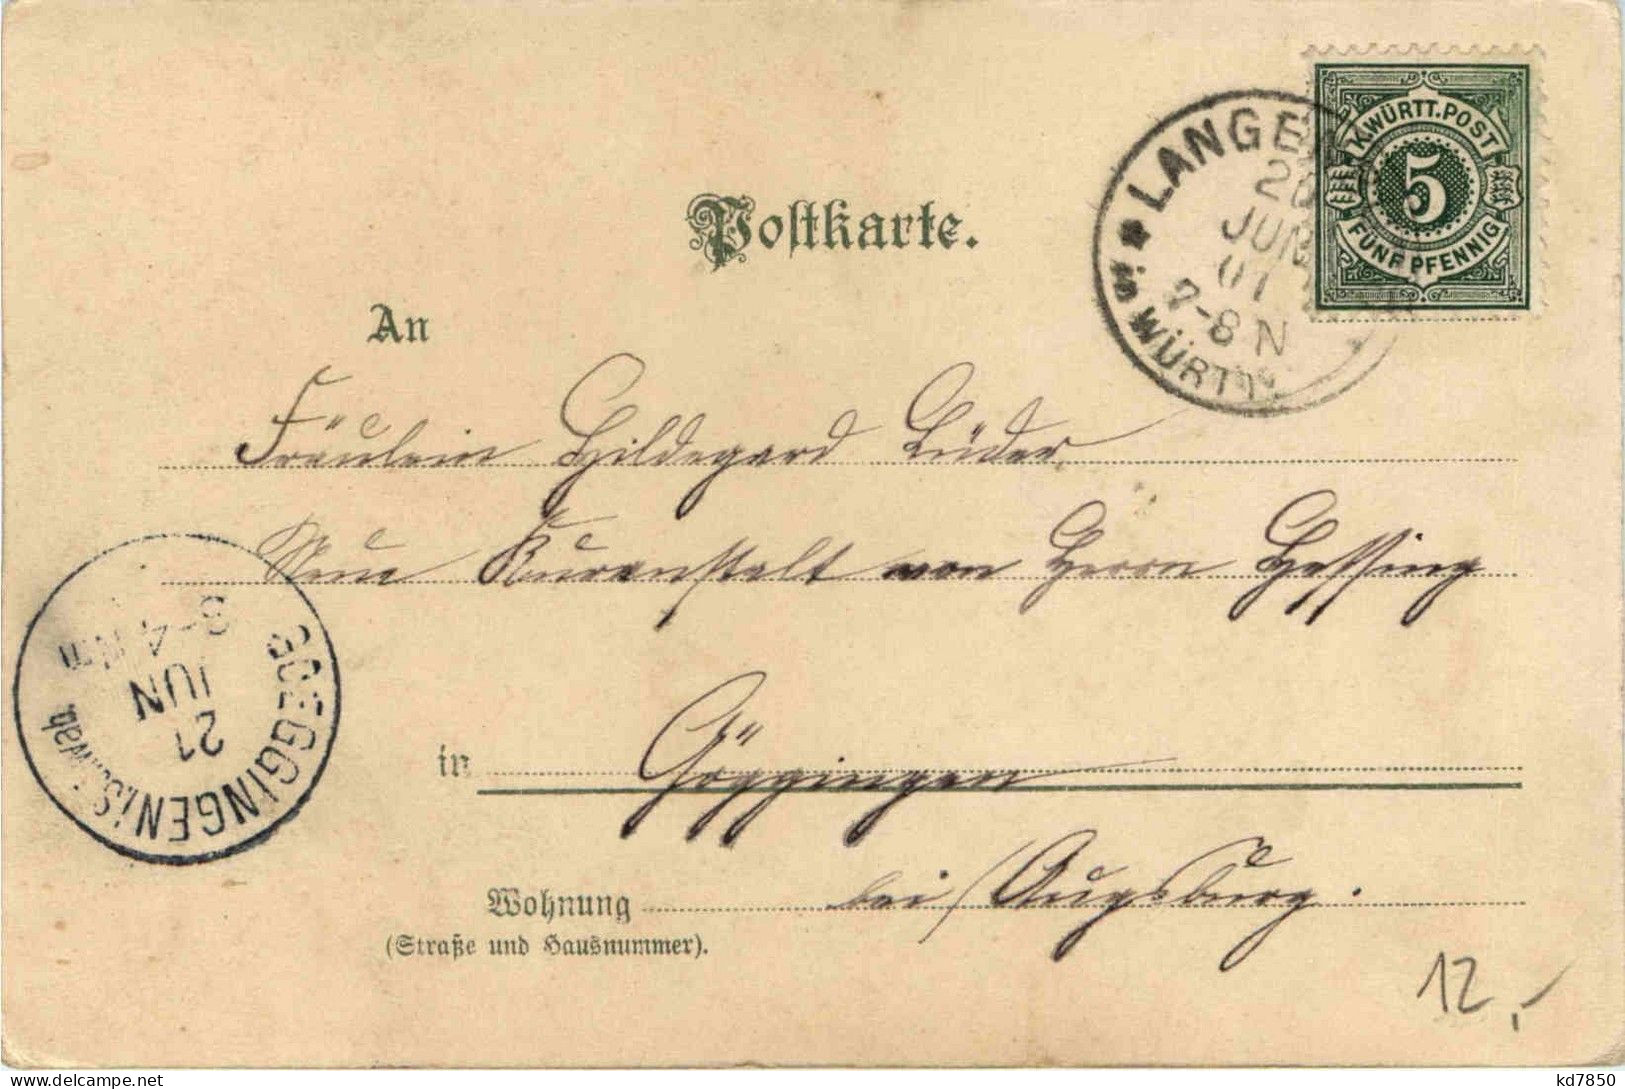 K.WÜRTT.POST
5
FÜNF PFENNIG
LANGE
20
JUN
01
7-8 N
in WÜRTT
Postkarte.
An
Fräulein Hildegard Lüder
Neue Kuranstalt von Herrn Hessing
in Göggingen
Wohnung bei Augsburg.
(Straße und Hausnummer).
GOEGGINGEN i. Schwab.
21
JUN
3-4 Nm
12,-
kd7850